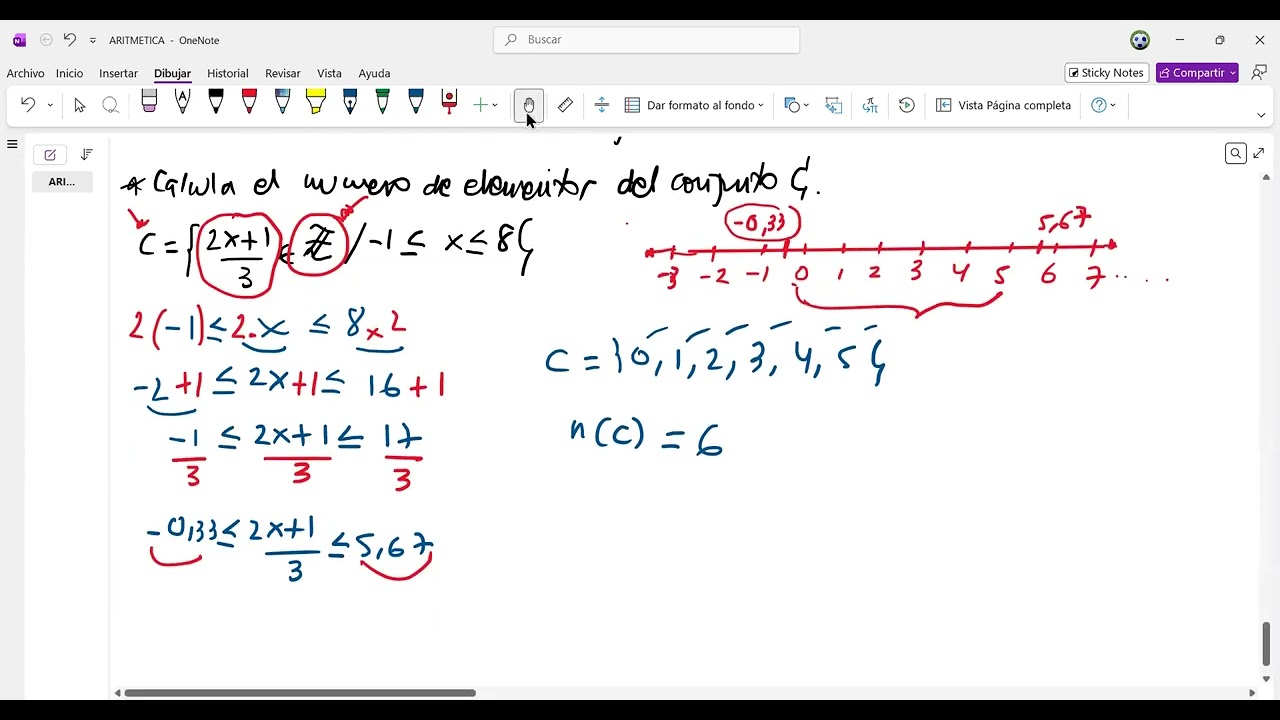 ARITMETICA - OneNote
Buscar
Archivo Inicio Insertar Dibujar Historial Revisar Vista Ayuda
Sticky Notes Compartir
Dar formato al fondo Vista Página completa
ARI...
* Calcula el numero de elementos del conjunto C.
C = { 2x+1/3 ∈ ℤ / -1 ≤ x ≤ 8 }
-0,33 5,67
-3 -2 -1 0 1 2 3 4 5 6 7 ....
2(-1) ≤ 2.x ≤ 8x2
-2+1 ≤ 2x+1 ≤ 16+1
-1/3 ≤ 2x+1/3 ≤ 17/3
-0,33 ≤ 2x+1/3 ≤ 5,67
C = {0, 1, 2, 3, 4, 5}
n(C) = 6